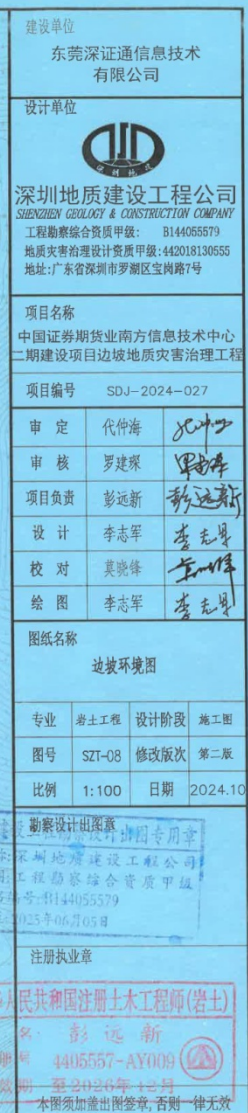 建设单位
东莞深证通信息技术
有限公司
设计单位
深圳地质
深圳地质建设工程公司
SHENZHEN GEOLOGY & CONSTRUCTION COMPANY
工程勘察综合资质甲级: B144055579
地质灾害治理设计资质甲级:442018130555
地址:广东省深圳市罗湖区宝岗路7号
项目名称
中国证券期货业南方信息技术中心
二期建设项目边坡地质灾害治理工程
项目编号 SDJ-2024-027
审 定 代仲海
审 核 罗建琛
项目负责 彭远新 彭远新
设 计 李志军 李志军
校 对 莫晓锋
绘 图 李志军 李志军
图纸名称
边坡环境图
专业 岩土工程 设计阶段 施工图
图号 SZT-08 修改版次 第二版
比例 1:100 日期 2024.10
勘察设计出图章
勘察设计出图专用章
深圳地质建设工程公司
工程勘察综合资质甲级
编号:B144055579
2025年06月05日
注册执业章
人民共和国注册土木工程师(岩土)
名 彭远新
号 4405557-AY009
效期 至2026年12月
本图须加盖出图签章,否则一律无效